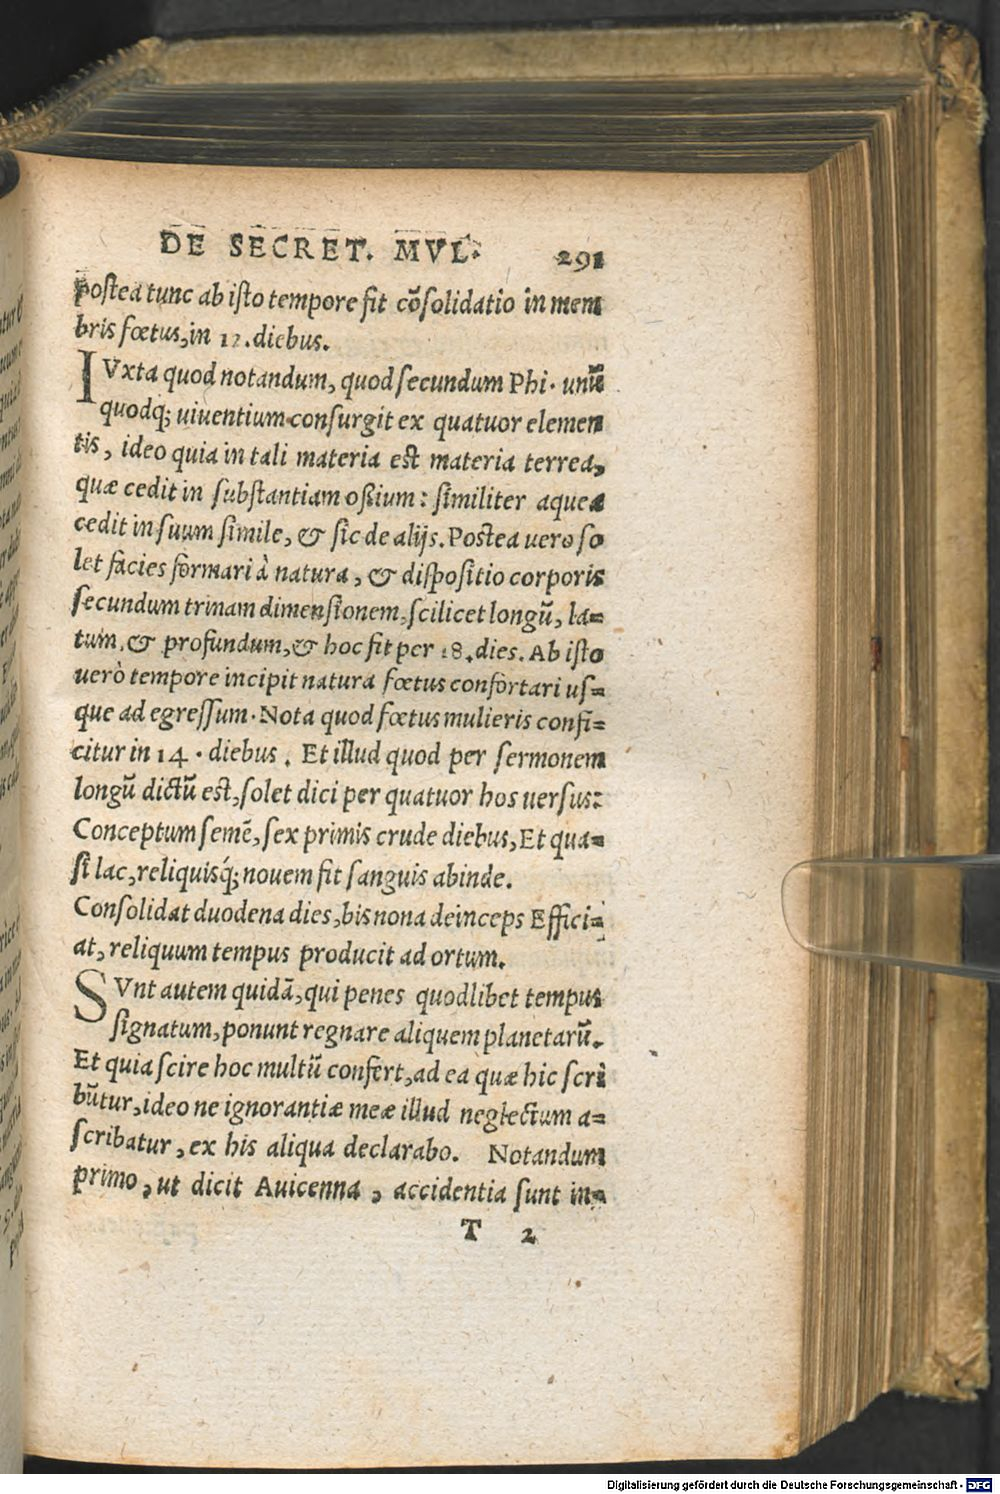 DE SECRET. MVL. 291
postea tunc ab isto tempore fit cōsolidatio in mem
bris fœtus, in 12. diebus.
IVxta quod notandum, quod secundum Phi. unū
quodq; uiuentium consurgit ex quatuor elemen
tis, ideo quia in tali materia est materia terrea,
quæ cedit in substantiam ossium: similiter aquea
cedit in suum simile, & sic de alijs. Postea uero so
let facies formari à natura, & dispositio corporis
secundum trinam dimensionem, scilicet longū, la=
tum, & profundum, & hoc fit per 18. dies. Ab isto
uerò tempore incipit natura fœtus confortari us=
que ad egressum. Nota quod fœtus mulieris confi=
citur in 14. diebus. Et illud quod per sermonem
longū dictū est, solet dici per quatuor hos uersus:
Conceptum semē, sex primis crude diebus, Et qua=
si lac, reliquisq́; nouem fit sanguis abinde.
Consolidat duodena dies, bis nona deinceps Effici=
at, reliquum tempus producit ad ortum.
SVnt autem quidā, qui penes quodlibet tempus
signatum, ponunt regnare aliquem planetarū.
Et quia scire hoc multū confert, ad ea quæ hic scri
būtur, ideo ne ignorantiæ meæ illud neglectum a=
scribatur, ex his aliqua declarabo. Notandum
primo, ut dicit Auicenna, accidentia sunt in=
T 2
Digitalisierung gefördert durch die Deutsche Forschungsgemeinschaft - DFG